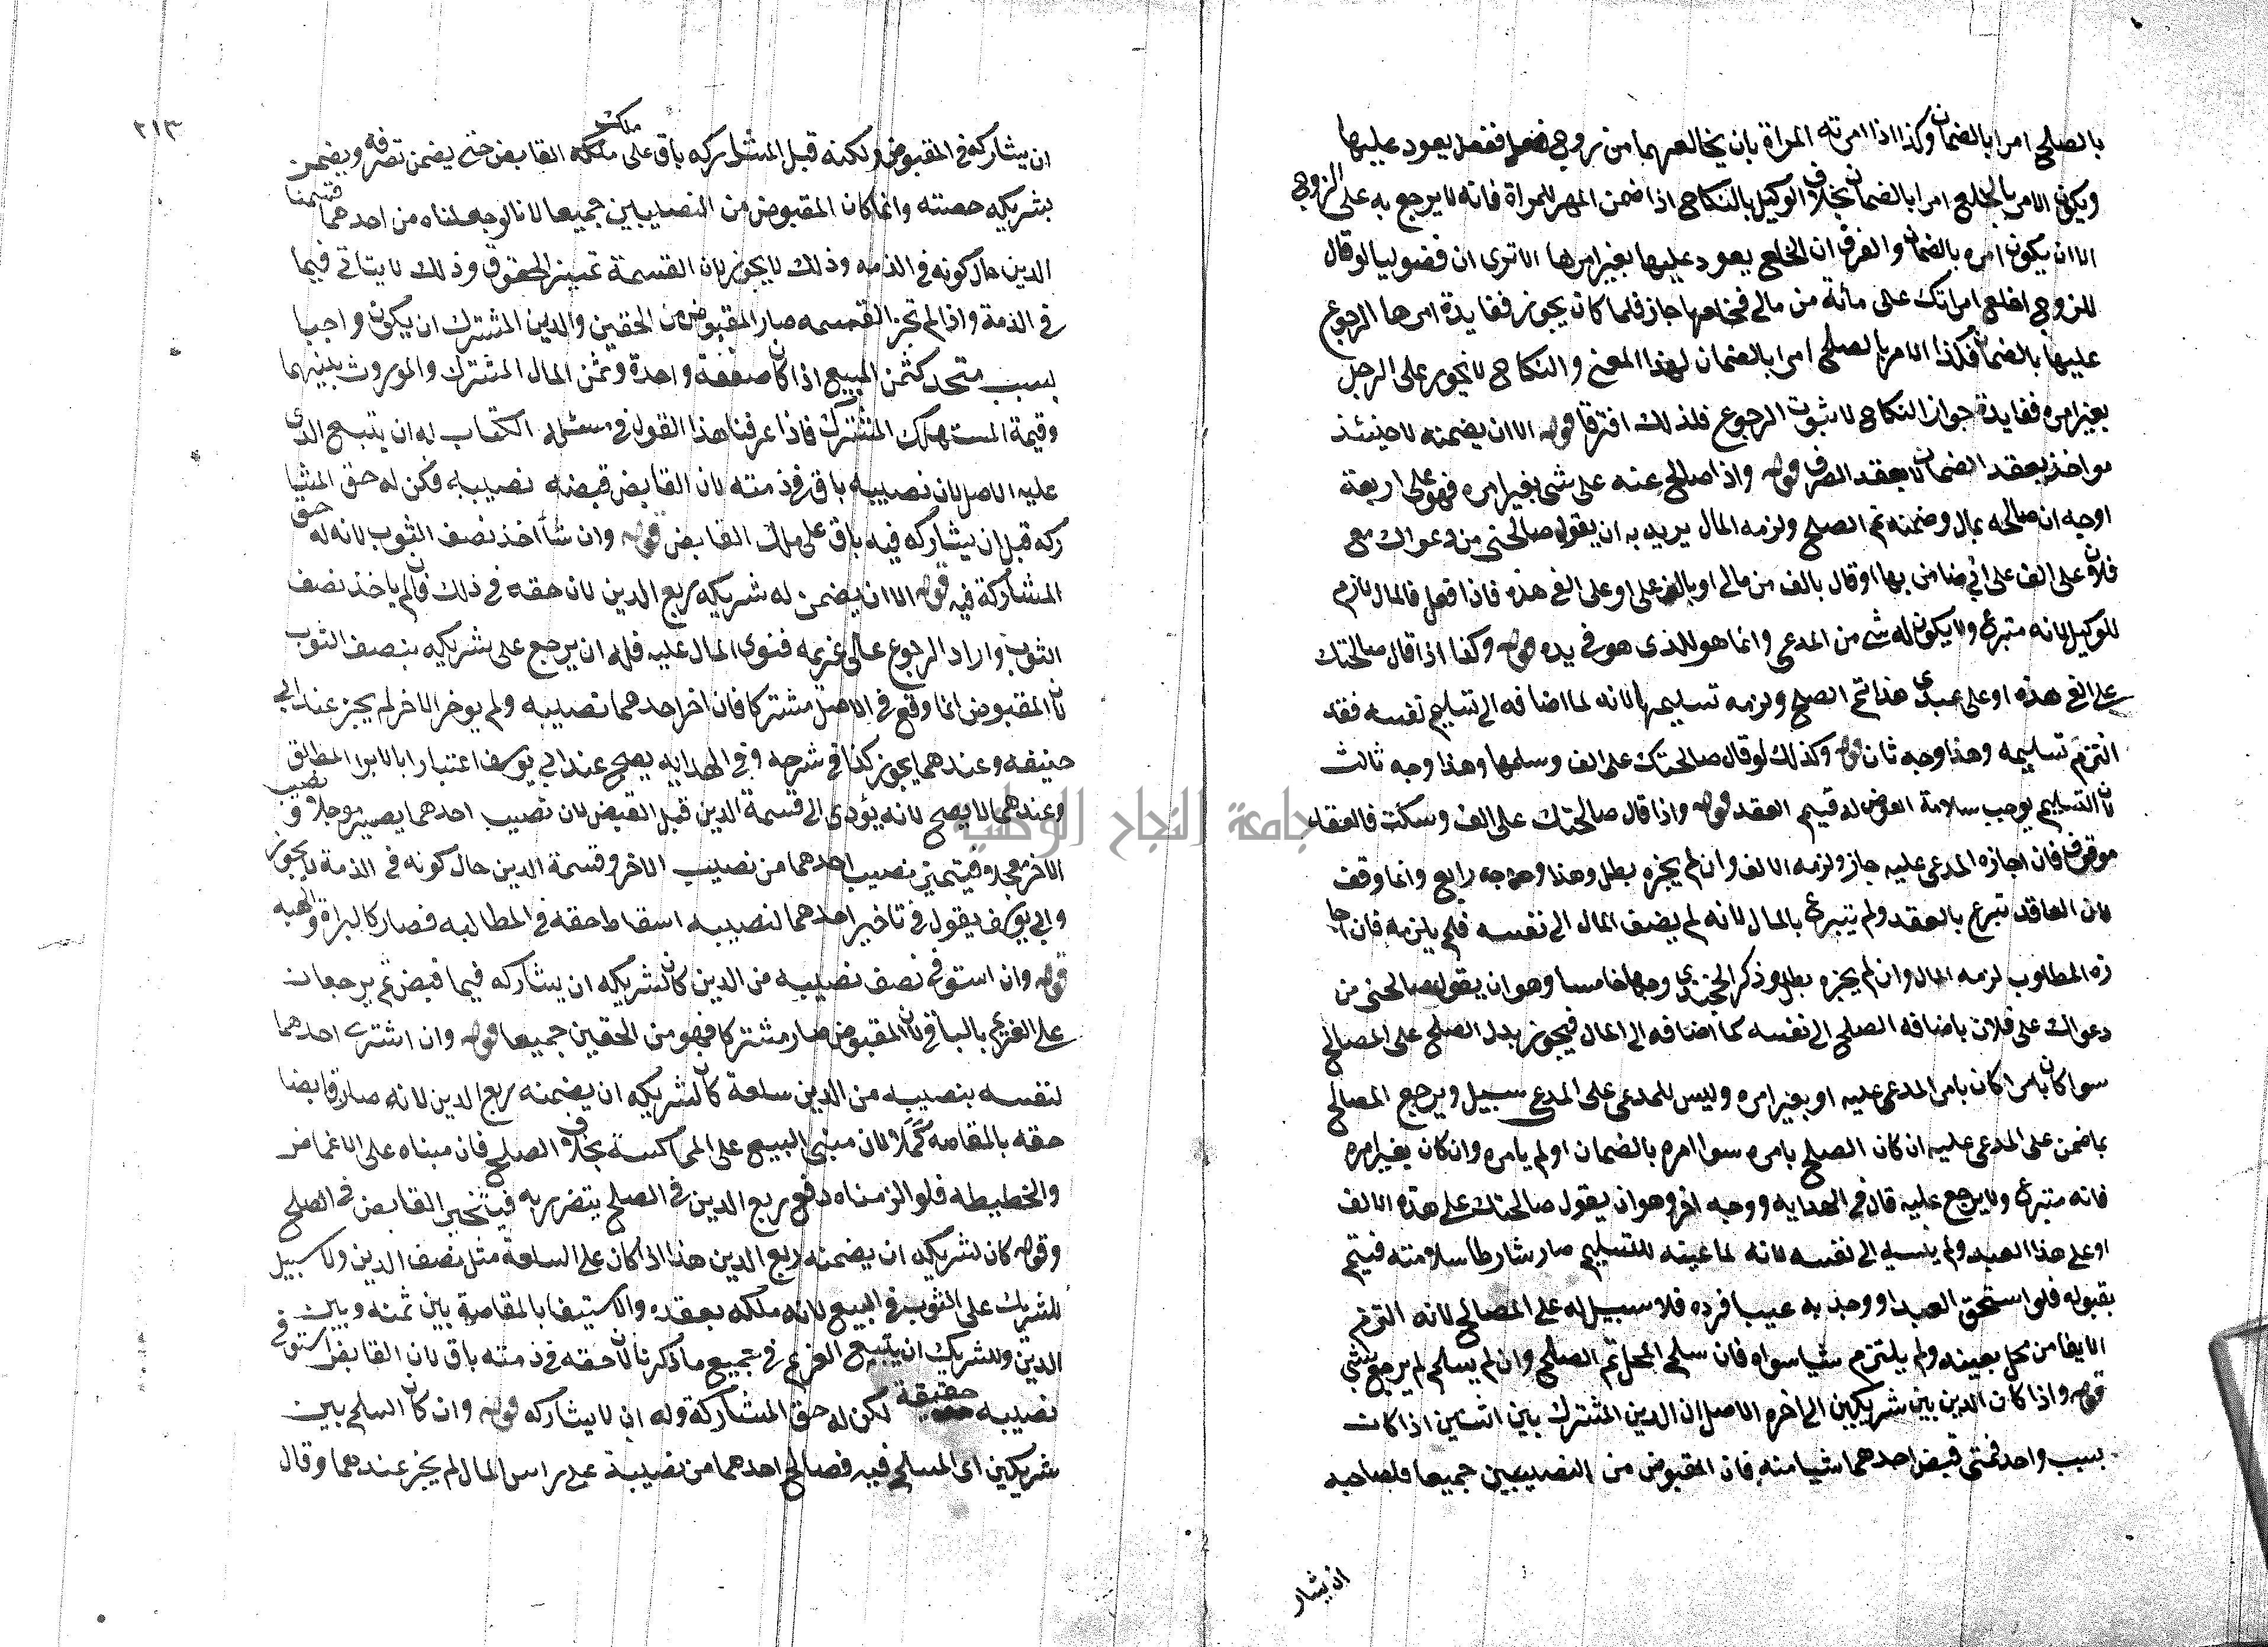 بالصلح امرا بالضمان وكذا اذا امرته المراة بان يخالعها من زوجها ففعل يعود عليها
ويكون الامر بالخلع امرا بالضمان بخلاف الوكيل بالنكاح اذا ضمن المهر للمراة فانه لا يرجع به على الزوج
الا ان يكون امره بالضمان والفرق ان الخلع يعود عليها بغير امرها الا ترى ان فضوليا لو قال
للزوج اخلع امراتك على مائة من مالي فخلعها جاز فلما كان يجوز ففايدة امرها الرجوع
عليها بالضمان فكذا الامر بالصلح امرا بالضمان لهذا المعنى والنكاح لا يجوز على الرجل
بغير امره ففايدة جواز النكاح لا ثبوت الرجوع فلذلك افترقا قوله الا ان يضمنه لا حينئذ
مواخذ بعقد الضمان لا بعقد الصرف قوله واذا صالح عنه على شي بغير امره فهو على اربعة
اوجه ان صالحه بمال وضمنه تم الصلح ولزمه المال يريد به ان يقول صالحني من دعواك مع
فلان على الف على اني ضامن بها او قال بالف من مالي او بالف علي او على الفي هذه فاذا فعل فالمال لازم
للوكيل لانه متبرع ولا يكون له شي من المدعى وانما هو للذى هو في يده قوله وكذا اذا قال صالحتك
على الفي هذه او على عبدي هذا تم الصلح ولزمه تسليمها لانه لما اضافه الى تسليم نفسه فقد
التزم تسليمه وهذا وجه ثان قوله وكذلك لو قال صالحتك على الف وسلمها وهذا وجه ثالث
لان التسليم يوجب سلامة العوض له فيتم العقد قوله واذا قال صالحتك على الف وسكت فالعقد
موقوف فان اجازه المدعى عليه جاز ولزمه الالف وان لم يجزه بطل وهذا وجه رابع وانما وقف
لان العاقد تبرع بالعقد ولم يتبرع بالمال لانه لم يضف المال الى نفسه فلم يلزمه فان اجا
زه المطلوب لزمه المال وان لم يجزه بطل وذكر الخجندي وجها خامسا وهو ان يقول صالحني من
دعواك على فلان باضافه الصلح الى نفسه كما اضافه الى المال فيجوز بدل الصلح على المصالح
سوا كان بامر اكان بامر المدعى عليه او بغير امره وليس للمدعى على المدعى سبيل ويرجع المصالح
بما ضمن على المدعى عليه ان كان الصلح بامره سوا امره بالضمان او لم يامره وان كان بغير امره
فانه متبرع ولا يرجع عليه قال في الهدايه ووجه اخر وهو ان يقول صالحتك على هذه الالف
او على هذا العبد ولم ينسبه الى نفسه لانه لما عينه للتسليم صار شارطا سلامته فيتم
بقبوله فلو استحق العبد او وجد به عيبا فرده فلا سبيل له على المصالح لانه التزم
الايفا من محل بعينه ولم يلتزم شيا سواه فان سلم المحل تم الصلح وان لم يسلم لم يرجع بشي
قوله واذا كان الدين بين شريكين الى اخره الاصل ان الدين المشترك بين اثنين اذا كان
بسبب واحد فمتى قبض احدهما شيا منه فان المقبوض من النصيبين جميعا فلصاحبه
ان يشار
٢١٣
ان يشاركه في المقبوض ولكنه قبل المشاركه باق على ملك القابض حتى يضمن تصرفه ويضمن
بشريكه حصته وانما كان المقبوض من النصيبين جميعا لانا لو جعلناه من احدهما قسمنا
الدين حال كونه في الذمه وذلك لا يجوز لان القسمة تمييز الحقوق وذلك لا يتاتى فيما
في الذمة واذا لم تجز القسمه صار المقبوض من الحقين والدين المشترك ان يكون واجبا
بسبب متحد كثمن المبيع اذا كان صفقة واحدة وثمن المال المشترك والموروث بينهما
وقيمة المستهلك المشترك فاذا عرفنا هذا القول في مسئلة الكتاب له ان يتبع الذى
عليه الاصل لان نصيبه باق في ذمته لان القابض قبضه نصيبه لكن له حق المشا
ركه قبل ان يشاركه فيه باق على ملك القابض قوله وان شأ اخذ نصف الثوب لانه له حق
المشاركة فيه قوله الا ان يضمن له شريكه ربع الدين لان حقه في ذلك فان لم ياخذ نصف
الثوب واراد الرجوع على غريمه فنوى المال عليه فله ان يرجع على شريكه بنصف الثوب
لان المقبوض انما وقع في الاصل مشتركا فان اخر احدهما نصيبه ولم يوخر الاخر لم يجز عند ابي
حنيفه وعندهما يجوز كذا في شرحه وفي الهدايه يصح عند ابي يوسف اعتبارا بالابرا المطلق
وعندهما لا يصح لانه يؤدى الى قسمة الدين قبل القبض لان نصيب احدهما يصير موجلا ونصيب
الاخر معجلا فيتميز نصيب احدهما من نصيب الاخر وقسمة الدين حال كونه في الذمة لا يجوز
وابي يوسف يقول في تاخير احدهما لنصيبه اسقاط حقه في المطالبه فصار كالبراة والهبه
قوله وان استوفى نصف نصيبه من الدين كان لشريكه ان يشاركه فيما قبض ثم يرجعان
على الغريم بالباقي لان المقبوض صار مشتركا فهو من الحقين جميعا قوله وان اشترى احدهما
لنفسه بنصيبه من الدين سلعة كان لشريكه ان يضمنه ربع الدين لانه صار قابضا
حقه بالمقاصه كملا لان مبنى البيع على المماكسة بخلاف الصلح فان مبناه على الاغماض
والخطيطه فلو الزمناه دفع ربع الدين في الصلح يتضرر به فيتخير القابض في الصلح
وقوله كان لشريكه ان يضمنه ربع الدين هذا اذا كان على السلعة مثل نصف الدين ولا سبيل
للشريك على الثوب في البيع لانه ملكه بعقده والاستيفا بالمقاصة بين ثمنه وبين
الدين وللشريك ان يتبع الغريم في جميع ما ذكرنا لان حقه في ذمته باق لان القابض استوفى
نصيبه حقيقة لكن له حق المشاركة وله ان لا يشاركه قوله وان كان السلم بين
شريكين اى المسلم فيه فصالح احدهما من نصيبة على راس المال لم يجز عندهما وقال
جامعة النجاح الوطنية